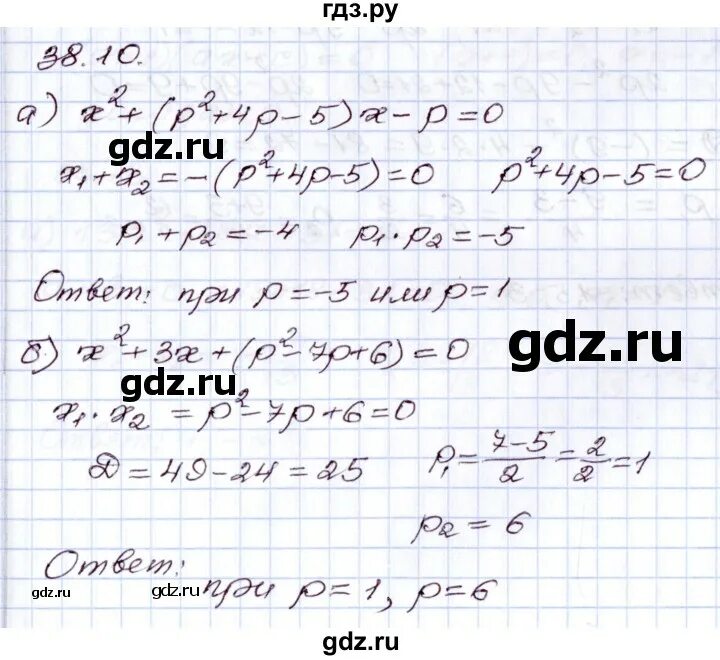 гдз.ру
38.10.
а) x²+(p²+4p-5)x-p=0
gdz.ru
x₁+x₂=-(p²+4p-5)=0 p²+4p-5=0
p₁+p₂=-4 p₁·p₂=-5
Ответ: при p=-5 или p=1
gdz.ru
б) x²+3x+(p²-7p+6)=0
gdz.ru
x₁·x₂=p²-7p+6=0
D=49-24=25 p₁=(7-5)/2=2/2=1
p₂=6
Ответ:
gdz.ru gdz.ru gdz.ru
при p=1, p=6
gdz.ru